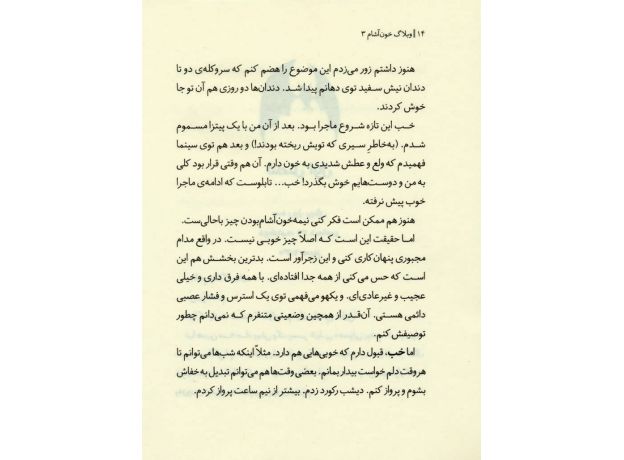 ۱۴ || وبلاگ خون‌آشام ۳
هنوز داشتم زور می‌زدم این موضوع را هضم کنم که سروکله‌ی دو تا
دندان نیش سفید توی دهانم پیدا شد. دندان‌ها دو روزی هم آن تو جا
خوش کردند.
خب این تازه شروع ماجرا بود. بعد از آن من با یک پیتزا مسموم
شدم. (به‌خاطرِ سیری که تویش ریخته بودند!) و بعد هم توی سینما
فهمیدم که ولع و عطش شدیدی به خون دارم. آن هم وقتی قرار بود کلی
به من و دوست‌هایم خوش بگذرد! خب... تابلوست که ادامه‌ی ماجرا
خوب پیش نرفته.
هنوز هم ممکن است فکر کنی نیمه‌خون‌آشام‌بودن چیز باحالی‌ست.
اما حقیقت این است که اصلاً چیز خوبی نیست. در واقع مدام
مجبوری پنهان‌کاری کنی و این زجرآور است. بدترین بخشش هم این
است که حس می‌کنی از همه جدا افتاده‌ای. با همه فرق داری و خیلی
عجیب و غیرعادی‌ای. و یکهو می‌فهمی توی یک استرس و فشار عصبی
دائمی هستی. آن‌قدر از همچین وضعیتی متنفرم که نمی‌دانم چطور
توصیفش کنم.
اما خب، قبول دارم که خوبی‌هایی هم دارد. مثلاً اینکه شب‌ها می‌توانم تا
هروقت دلم خواست بیدار بمانم. بعضی وقت‌ها هم می‌توانم تبدیل به خفاش
بشوم و پرواز کنم. دیشب رکورد زدم. بیشتر از نیم ساعت پرواز کردم.